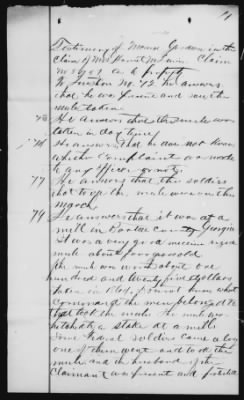 11
Testimony of Mason Gordon in the
Claim of Mrs Harriet M. Claim
No 1909 as to property
To question No. 72 he answers
that he was present and saw the
mule taken
73 He answers that the mule was
taken in day time
74 He answers that he does not know
whether complaint was made
to any officer or not
77 He answers that the soldiers
that took the mule were on the
march
79 He answers that it was at a
mill in County Georgia
it was a very good medium sized
mule about four years old
the mule was worth about one
hundred and twenty five dollars
taken in 1864, I do not know what
command the men belonged to
that took the mule. The mule was
hitched to a stake at a mill
Some Federal soldiers came along
one of them went and took the
mule and the husband of the
Claimant was present and